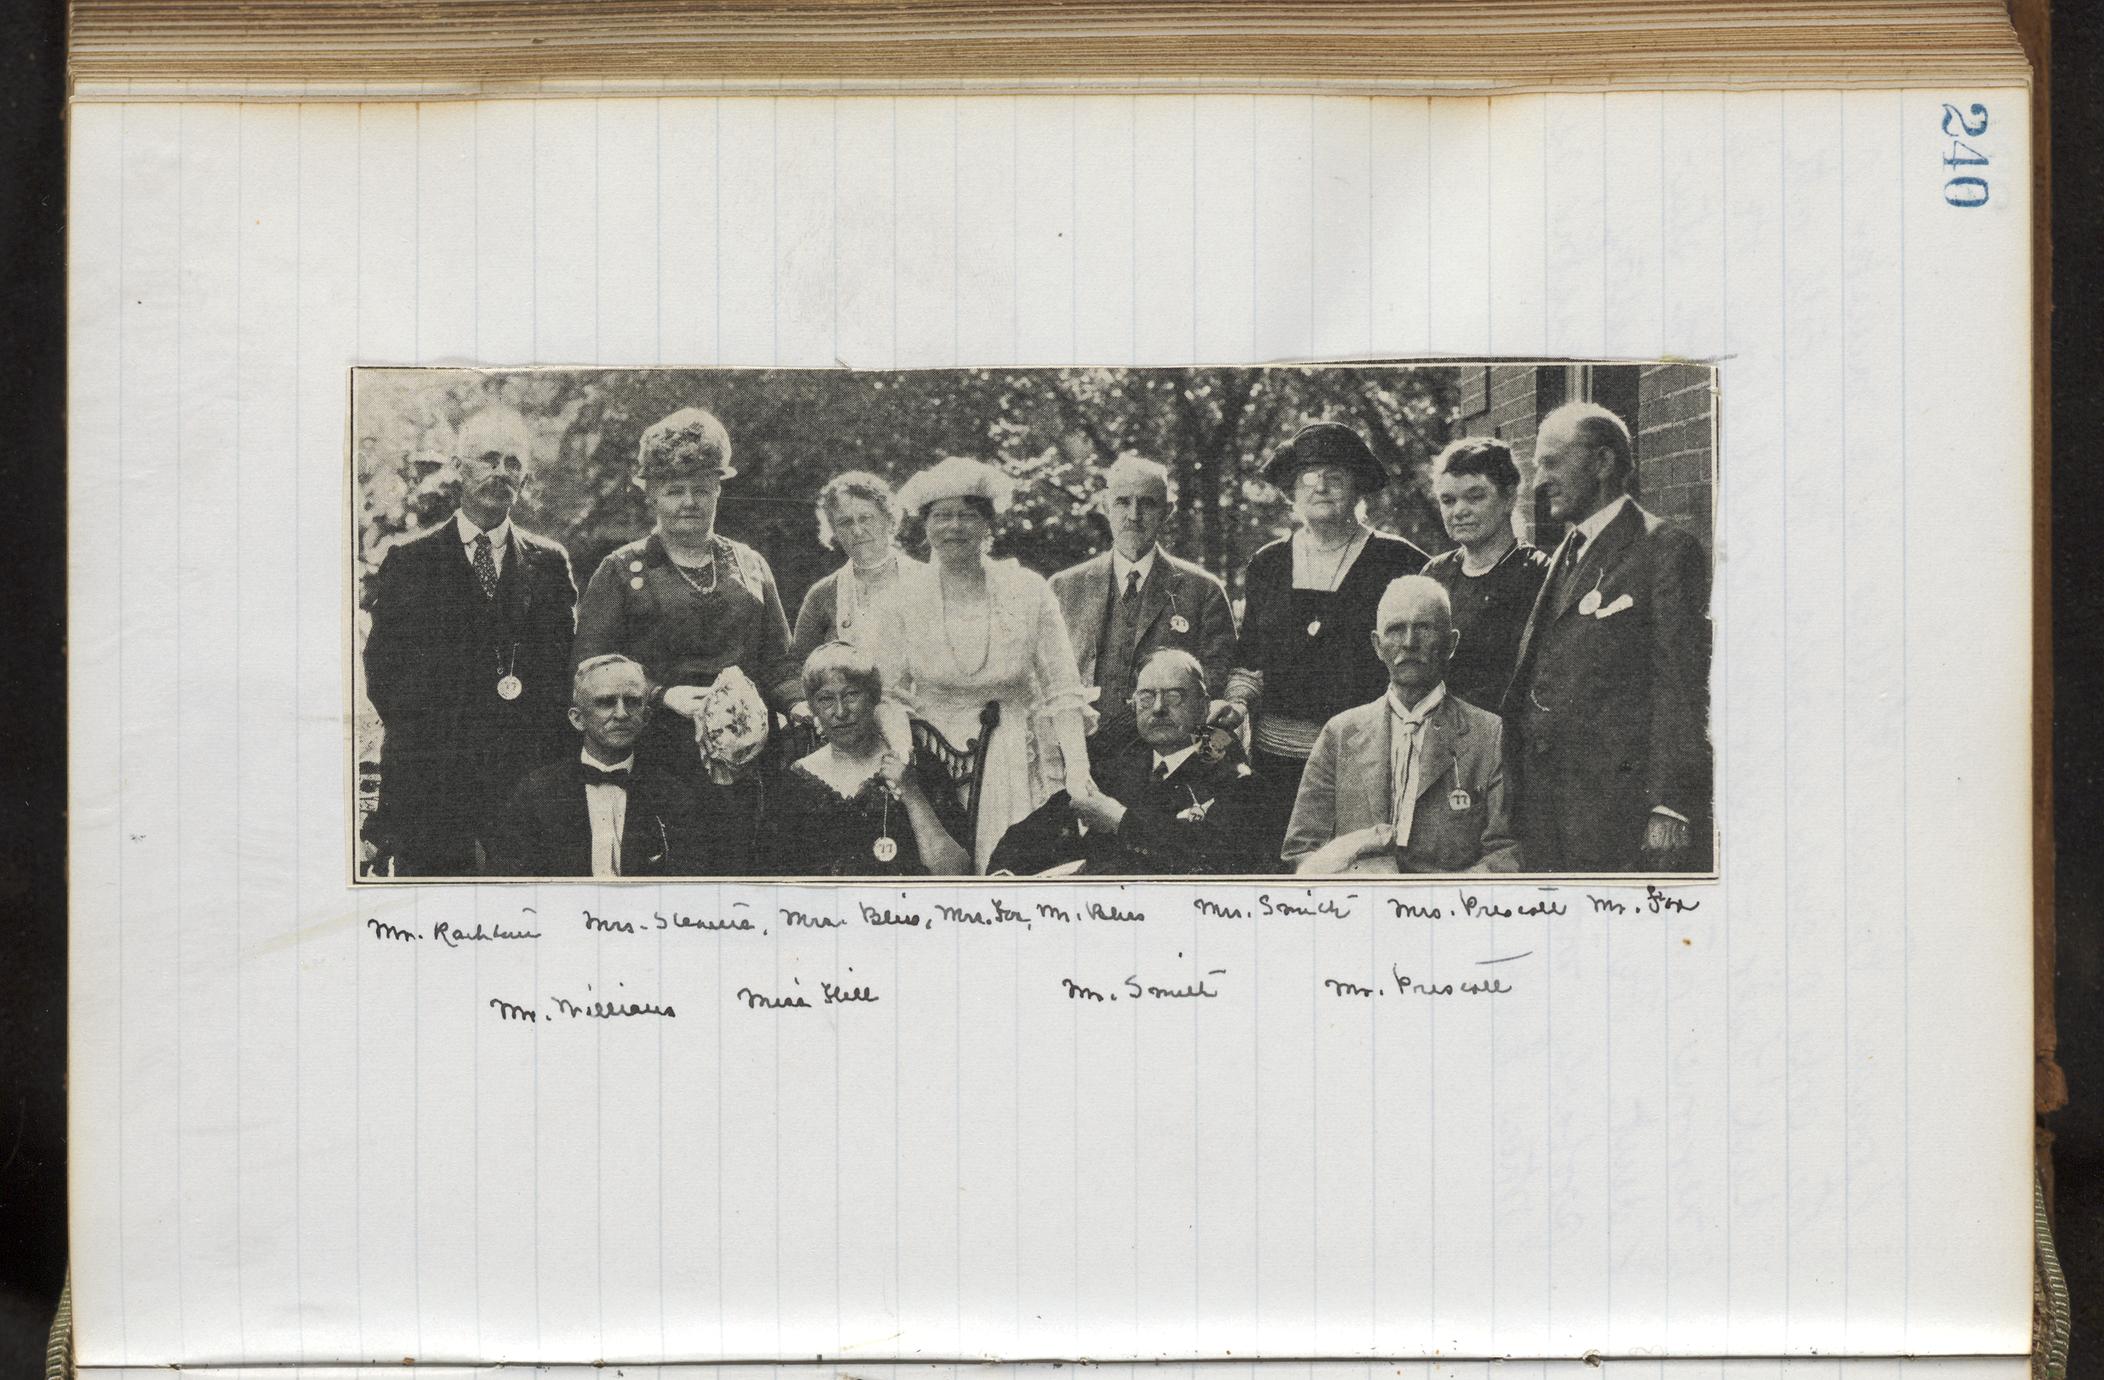 240
77
77
77
Mr. Rathbun Mrs. Stevens, Mrs. Bliss, Mrs. Fox, Mr. Bliss Mrs. Smith Mrs. Prescott Mr. Fox
Mr. Williams Miss Hill Mr. Smith Mr. Prescott